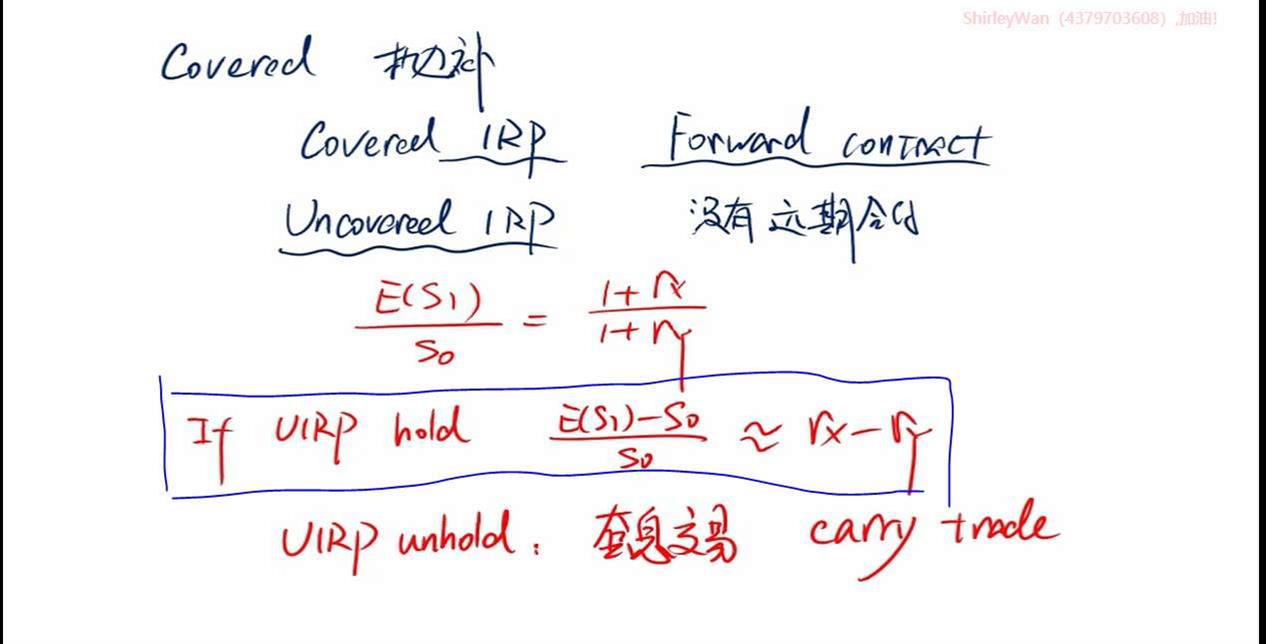 ShirleyWan（4379703608）,加油!
Covered
Covered IRP Forward contract
Uncovered IRP 没有远期合约
E(S1)/S0 = (1+rx)/(1+ry)
If UIRP hold (E(S1)-S0)/S0 ≈ rx-ry
UIRP unhold: 套息交易 carry trade